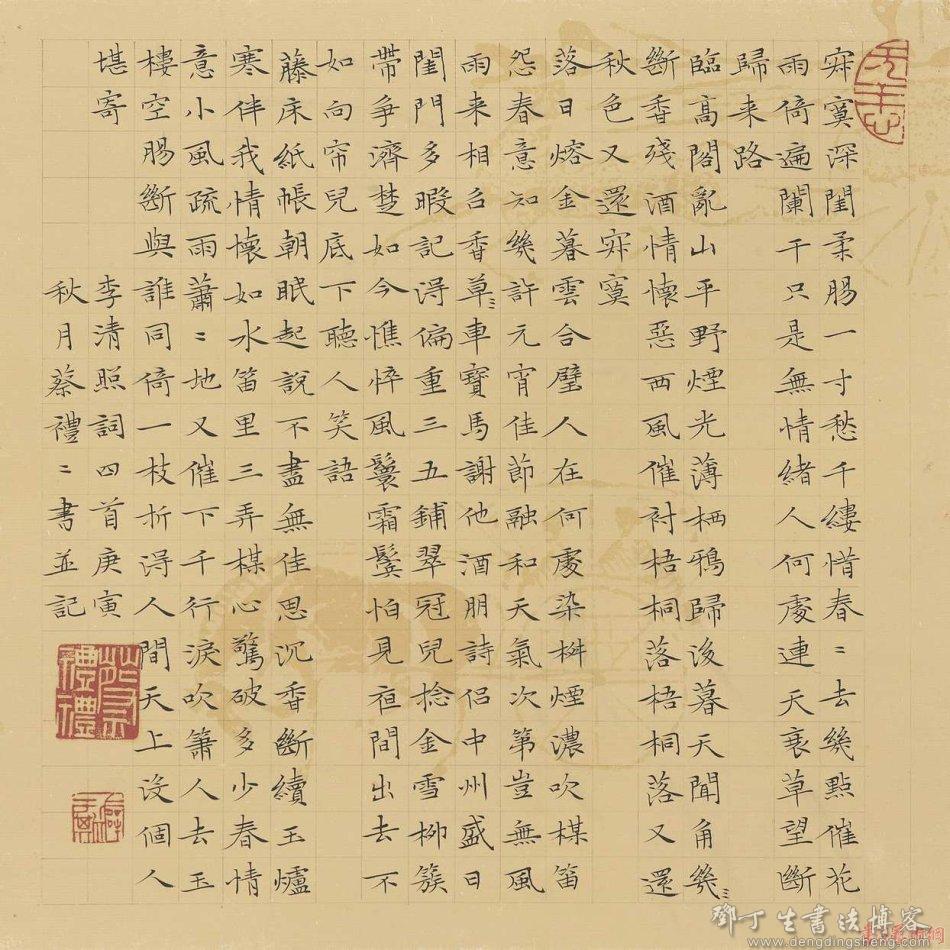 寂寞深閨柔腸一寸愁千縷惜春〻去幾點催花
雨倚遍闌干只是無情緒人何處連天衰草望斷
歸来路
臨高閣亂山平野煙光薄栖鴉歸後暮天聞角幾
斷香殘酒情懷惡西風催衬梧桐落梧桐落又還
秋色又還寂寞
落日熔金暮雲合璧人在何處染柳煙濃吹楳笛
怨春意知幾許元宵佳節融和天氣次第豈無風
雨来相召香草車寶馬謝他酒朋詩侣中州盛日
閨門多暇記得偏重三五鋪翠冠兒捻金雪柳簇
帶爭濟楚如今憔悴風鬟霜鬢怕見夜間出去不
如向帘兒底下聽人笑語
藤床紙帳朝眠起說不盡無佳思沉香斷續玉爐
寒伴我情懷如水笛里三弄楳心驚破多少春情
意小風疏雨蕭〻地又催下千行淚吹簫人去玉
樓空腸斷與誰同倚一枝折得人間天上没個人
堪寄
李清照詞四首庚寅
秋月蔡禮〻書並記
鄧丁生書法博客
www.dengdingsheng.com